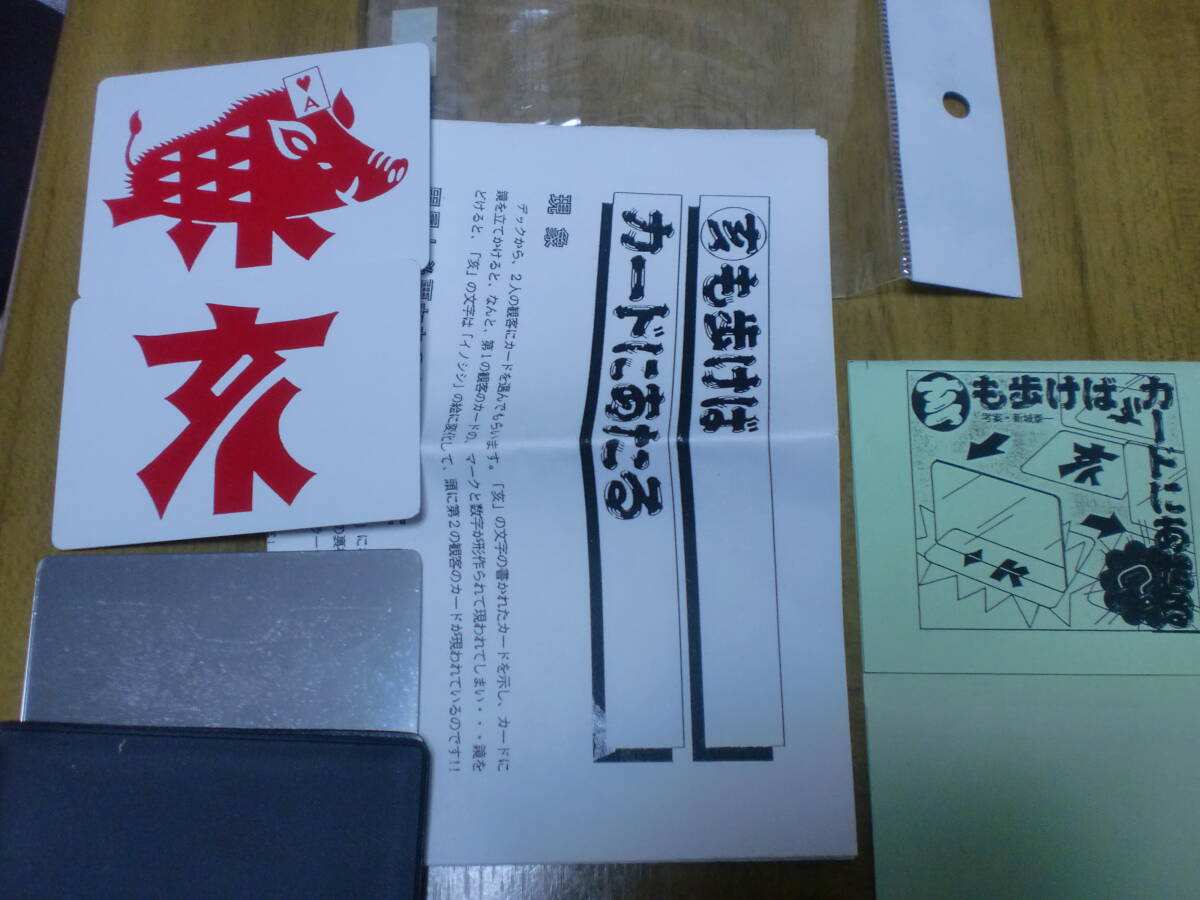 A
亥
亥も歩けば
カードにあたる
現象
デックから、2人の観客にカードを選んでもらいます。「亥」の文字の書かれたカードを示し、カードに
鏡を立てかけると、なんと、第1の観客のカードの、マークと数字が形作られて現われてしまい・・鏡を
どけると、「亥」の文字は「イノシシ」の絵に変化して、頭に第2の観客のカードが現われているのです!!
も歩けばカードにあ